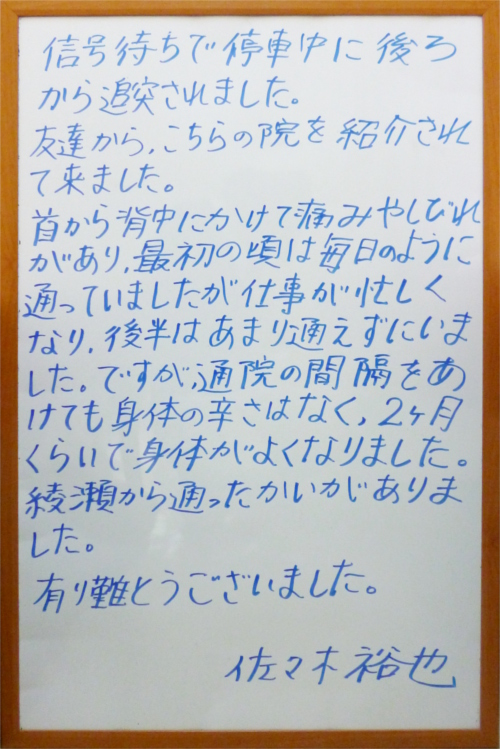 信号待ちで停車中に後ろ
から追突されました。
友達から、こちらの院を紹介され
て来ました。
首から背中にかけて痛みやしびれ
があり、最初の頃は毎日のように
通っていましたが仕事が忙しく
なり、後半はあまり通えずにいま
した。ですが、通院の間隔をあ
けても身体の辛さはなく、2ヶ月
くらいで身体がよくなりました。
綾瀬から通ったかいがありま
した。
有り難とうございました。
佐々木裕也